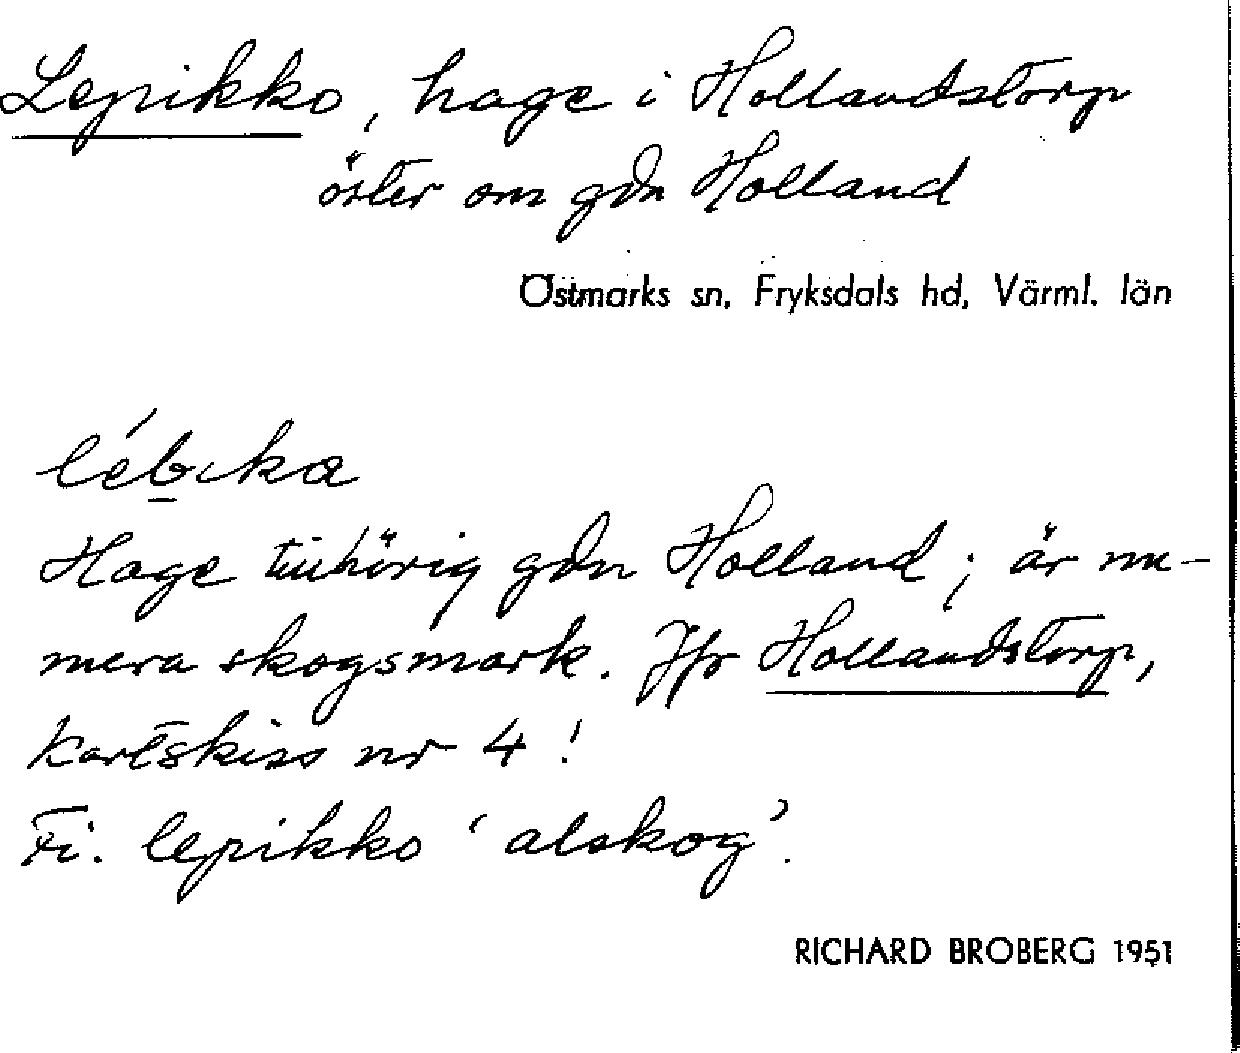 Lepikko, hage i Hollandstorp
öster om gdn Holland
Östmarks sn, Fryksdals hd, Värml. län
lébika
Hage tillhörig gdn Holland; är nu-
mera skogsmark. Jfr Hollandstorp,
Kartskiss nr 4!
Fi. lepikko 'alskog'.
RICHARD BROBERG 1951